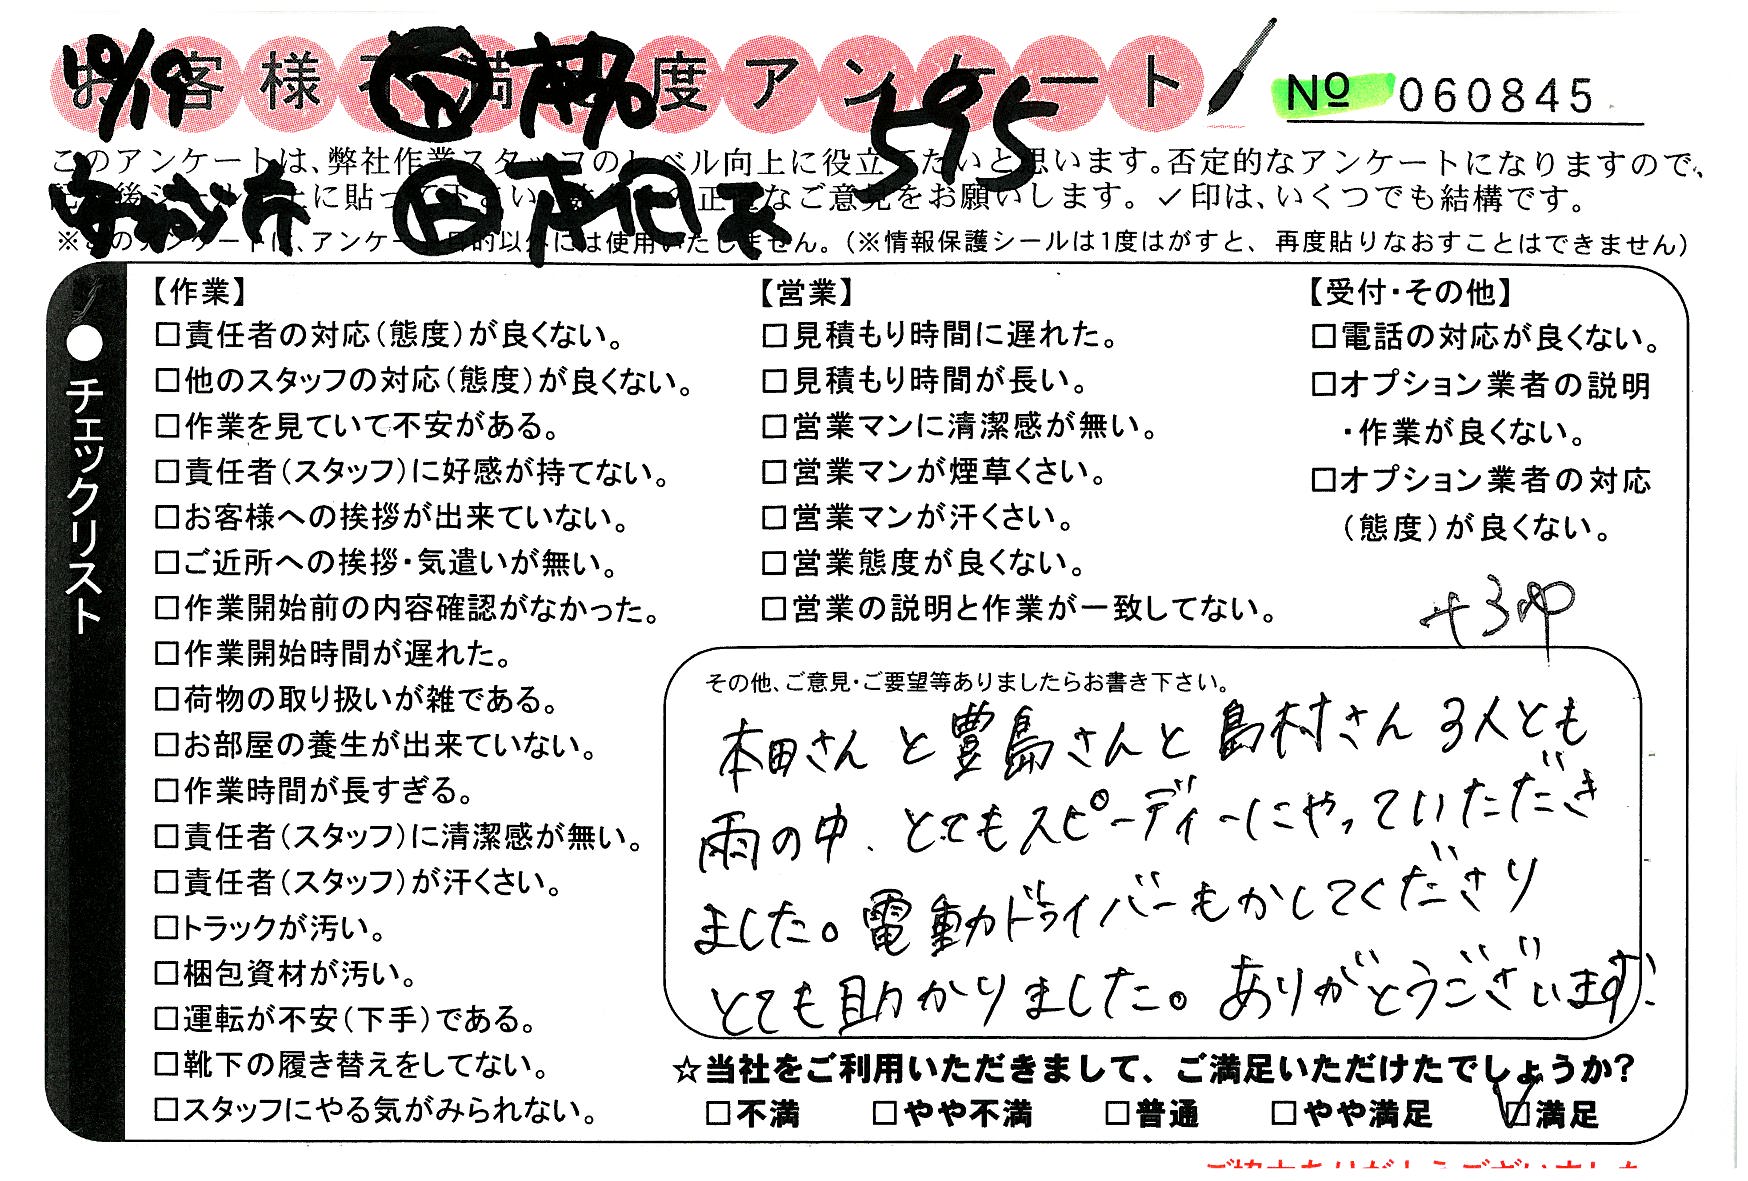 10/19
お客様不満足度アンケート
595
No 060845
このアンケートは、弊社作業スタッフのレベル向上に役立てたいと思います。否定的なアンケートになりますので、
に貼って下さい。 なご意見をお願いします。✓印は、いくつでも結構です。
※このアンケートは、アンケート目的以外には使用いたしません。(※情報保護シールは1度はがすと、再度貼りなおすことはできません)
●チェックリスト
【作業】
□責任者の対応(態度)が良くない。
□他のスタッフの対応(態度)が良くない。
□作業を見ていて不安がある。
□責任者(スタッフ)に好感が持てない。
□お客様への挨拶が出来ていない。
□ご近所への挨拶・気遣いが無い。
□作業開始前の内容確認がなかった。
□作業開始時間が遅れた。
□荷物の取り扱いが雑である。
□お部屋の養生が出来ていない。
□作業時間が長すぎる。
□責任者(スタッフ)に清潔感が無い。
□責任者(スタッフ)が汗くさい。
□トラックが汚い。
□梱包資材が汚い。
□運転が不安(下手)である。
□靴下の履き替えをしてない。
□スタッフにやる気がみられない。
【営業】
□見積もり時間に遅れた。
□見積もり時間が長い。
□営業マンに清潔感が無い。
□営業マンが煙草くさい。
□営業マンが汗くさい。
□営業態度が良くない。
□営業の説明と作業が一致してない。
【受付・その他】
□電話の対応が良くない。
□オプション業者の説明
・作業が良くない。
□オプション業者の対応
(態度)が良くない。
その他、ご意見・ご要望等ありましたらお書き下さい。
本田さんと豊島さんと島村さん3人とも
雨の中、とてもスピーディーにやっていただき
ました。電動ドライバーもかしてくださり
とても助かりました。ありがとうございます!
☆当社をご利用いただきまして、ご満足いただけたでしょうか?
□不満 □やや不満 □普通 □やや満足 ☑満足
ご協力ありがとうございました